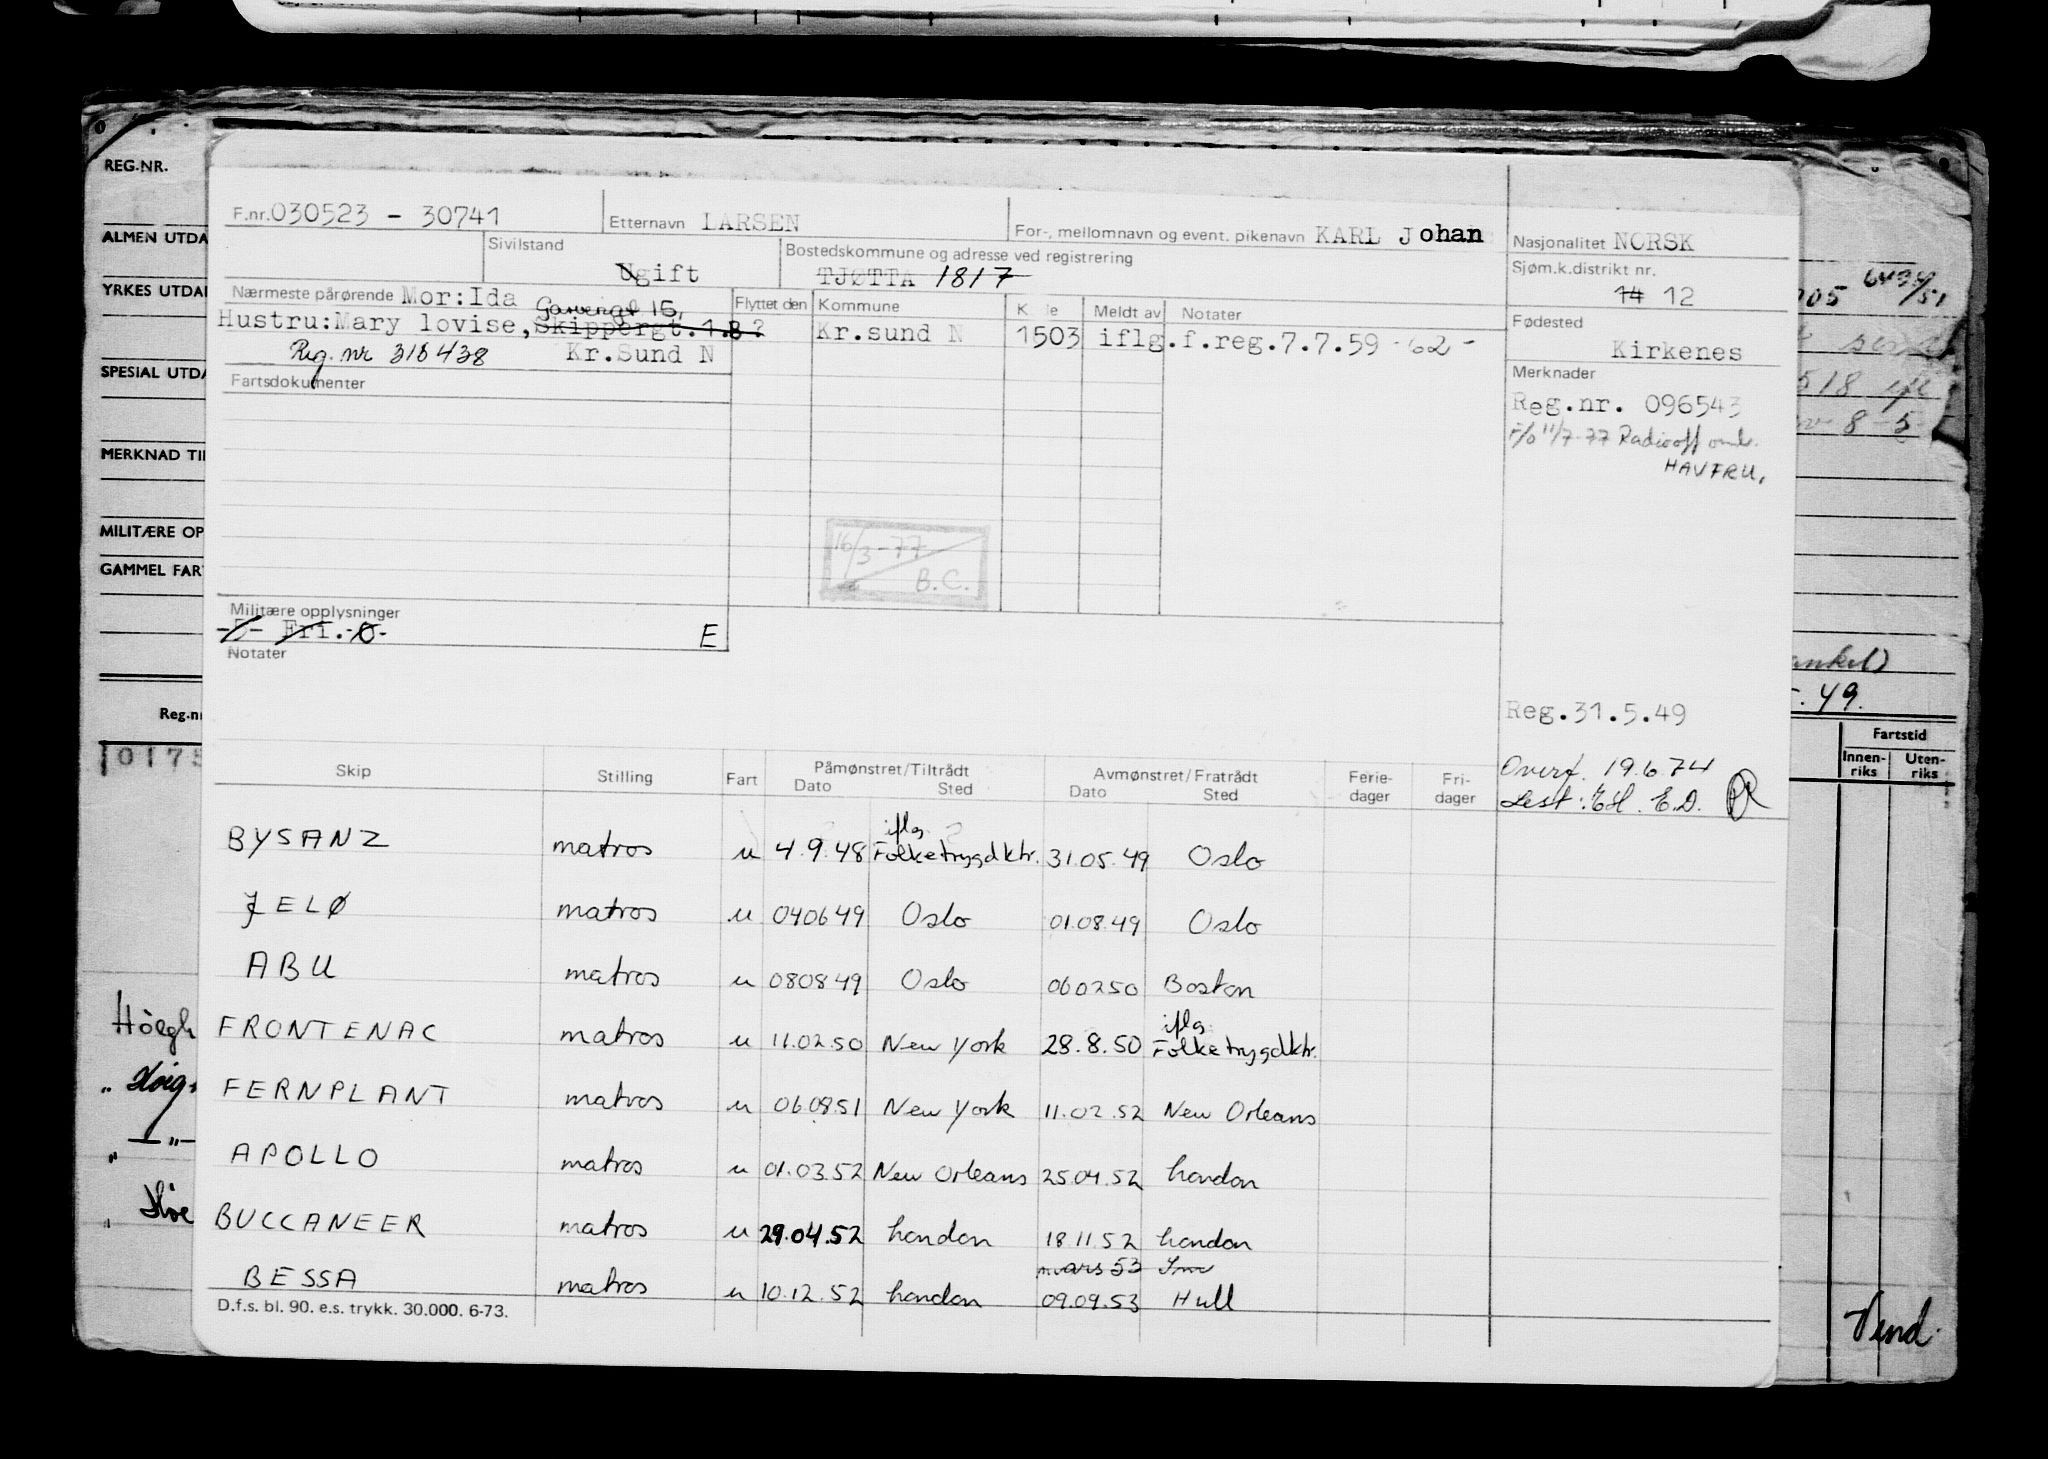 REG.NR.
ALMEN UTDA
YRKES UTDA
SPESIAL UTDA
MERKNAD TI
MILITÆRE OP
GAMMEL FAR
Reg.n
0175
Höegh
F.nr. 030523 - 30741 Etternavn LARSEN For-, mellomnavn og event. pikenavn KARL Johan Nasjonalitet NORSK
Sivilstand Ugift Bostedskommune og adresse ved registrering TJØTTA 1817 Sjøm.k.distrikt nr. 14 12
Nærmeste pårørende Mor:Ida Flyttet den Kommune K de Meldt av Notater Fødested
15,
Hustru:Mary lovise, Skippergt. 1.B ? Kr.sund N 1503 iflg.f.reg.7.7.59 -62- Kirkenes
Reg. nr 316438 Kr.Sund N
Fartsdokumenter
Merknader
Reg.nr. 096543
F/o 11/7-77 Radiooff omb.
HAVFRU.
16/3-77
B.C.
Militære opplysninger
Fri. E
Notater
Reg.31.5.49
Overf. 19.6.74
Lest: EH. E.D.
Skip Stilling Fart Påmønstret/Tiltrådt Dato Sted Avmønstret/Fratrådt Dato Sted Ferie-dager Fri-dager
BYSANZ matros u 4.9.48 iflg. Folketrygdktr. 31.05.49 Oslo
JELØ matros u 040649 Oslo 01.08.49 Oslo
ABU matros u 080849 Oslo 060250 Boston
FRONTENAC matros u 11.02.50 New York 28.8.50 iflg. Folketrygdktr.
FERNPLANT matros u 060851 New York 11.02.52 New Orleans
APOLLO matros u 01.03.52 New Orleans 25.04.52 London
BUCCANEER matros u 29.04.52 London 18.11.52 London
mars 53
BESSA matros u 10.12.52 London 09.09.53 Hull
D.f.s. bl. 90. e.s. trykk. 30.000. 6-73.
49.
Fartstid
Innen-riks Uten-riks
Vend.